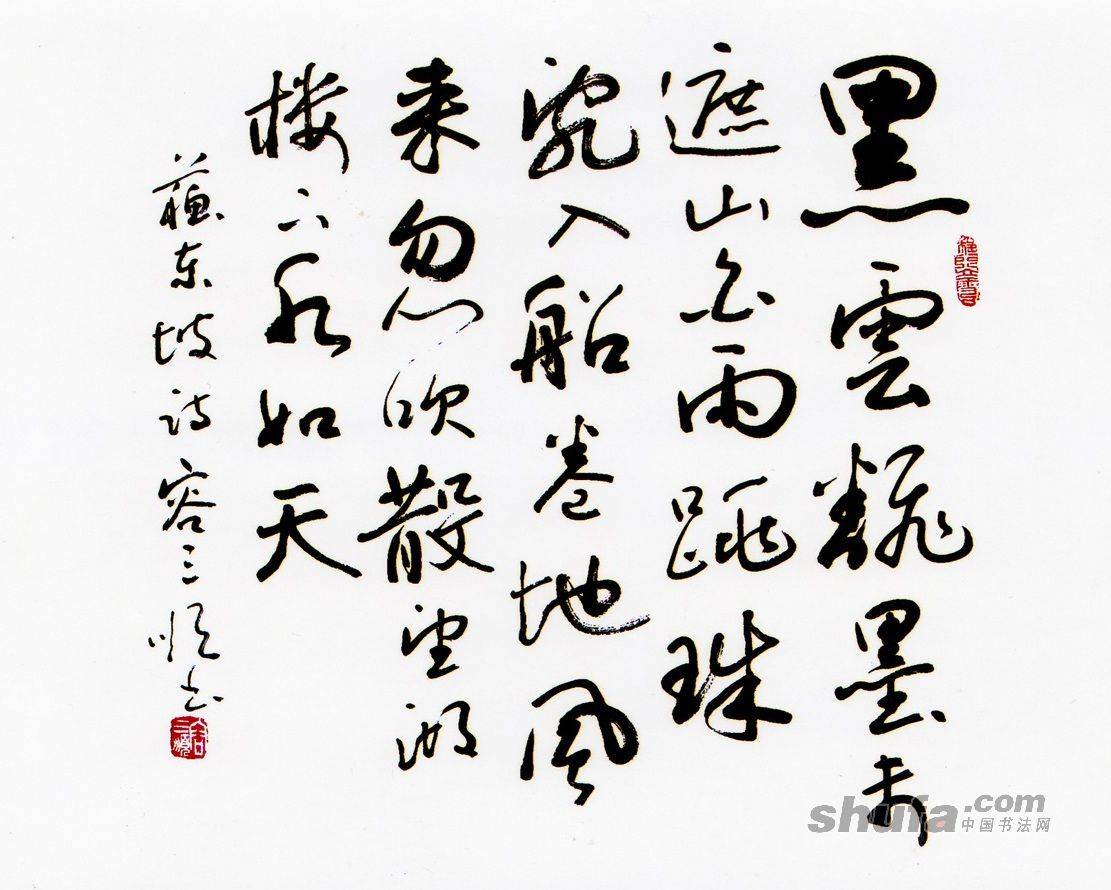 黑雲翻墨未
遮山白雨跳珠
亂入船卷地風
来忽吹散望湖
楼下水如天
蘇东坡诗容三顺书
shufa.com
中国书法网